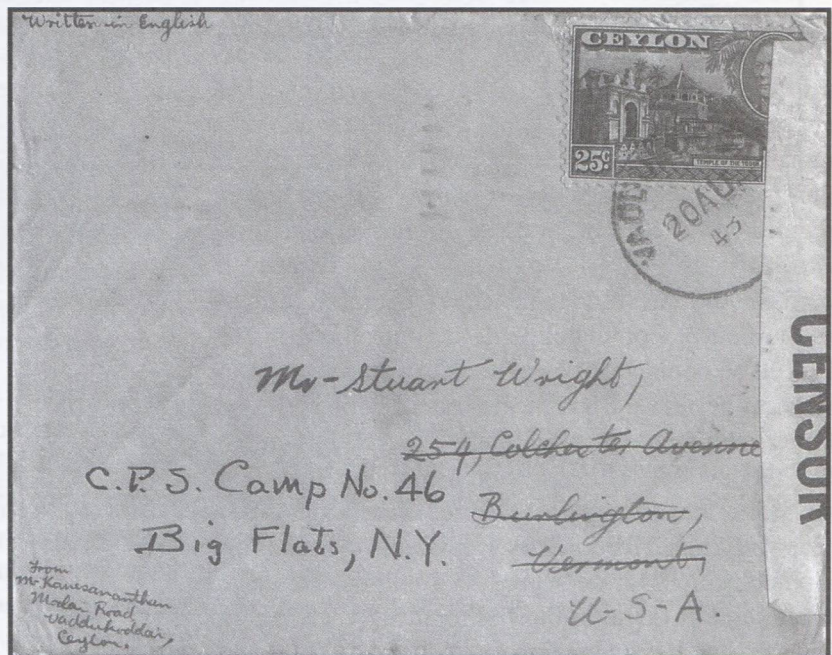 Written in English
CEYLON
25c
TEMPLE OF THE TOOTH
20 AU
43
CENSOR
Mr-Stuart Wright,
254, Colchester Avenue
C.P.S. Camp No. 46
Burlington,
Big Flats, N.Y.
Vermont,
U-S-A.
From
Mr Kanesananthan
Modai Road
Vaddukoddai,
Ceylon.